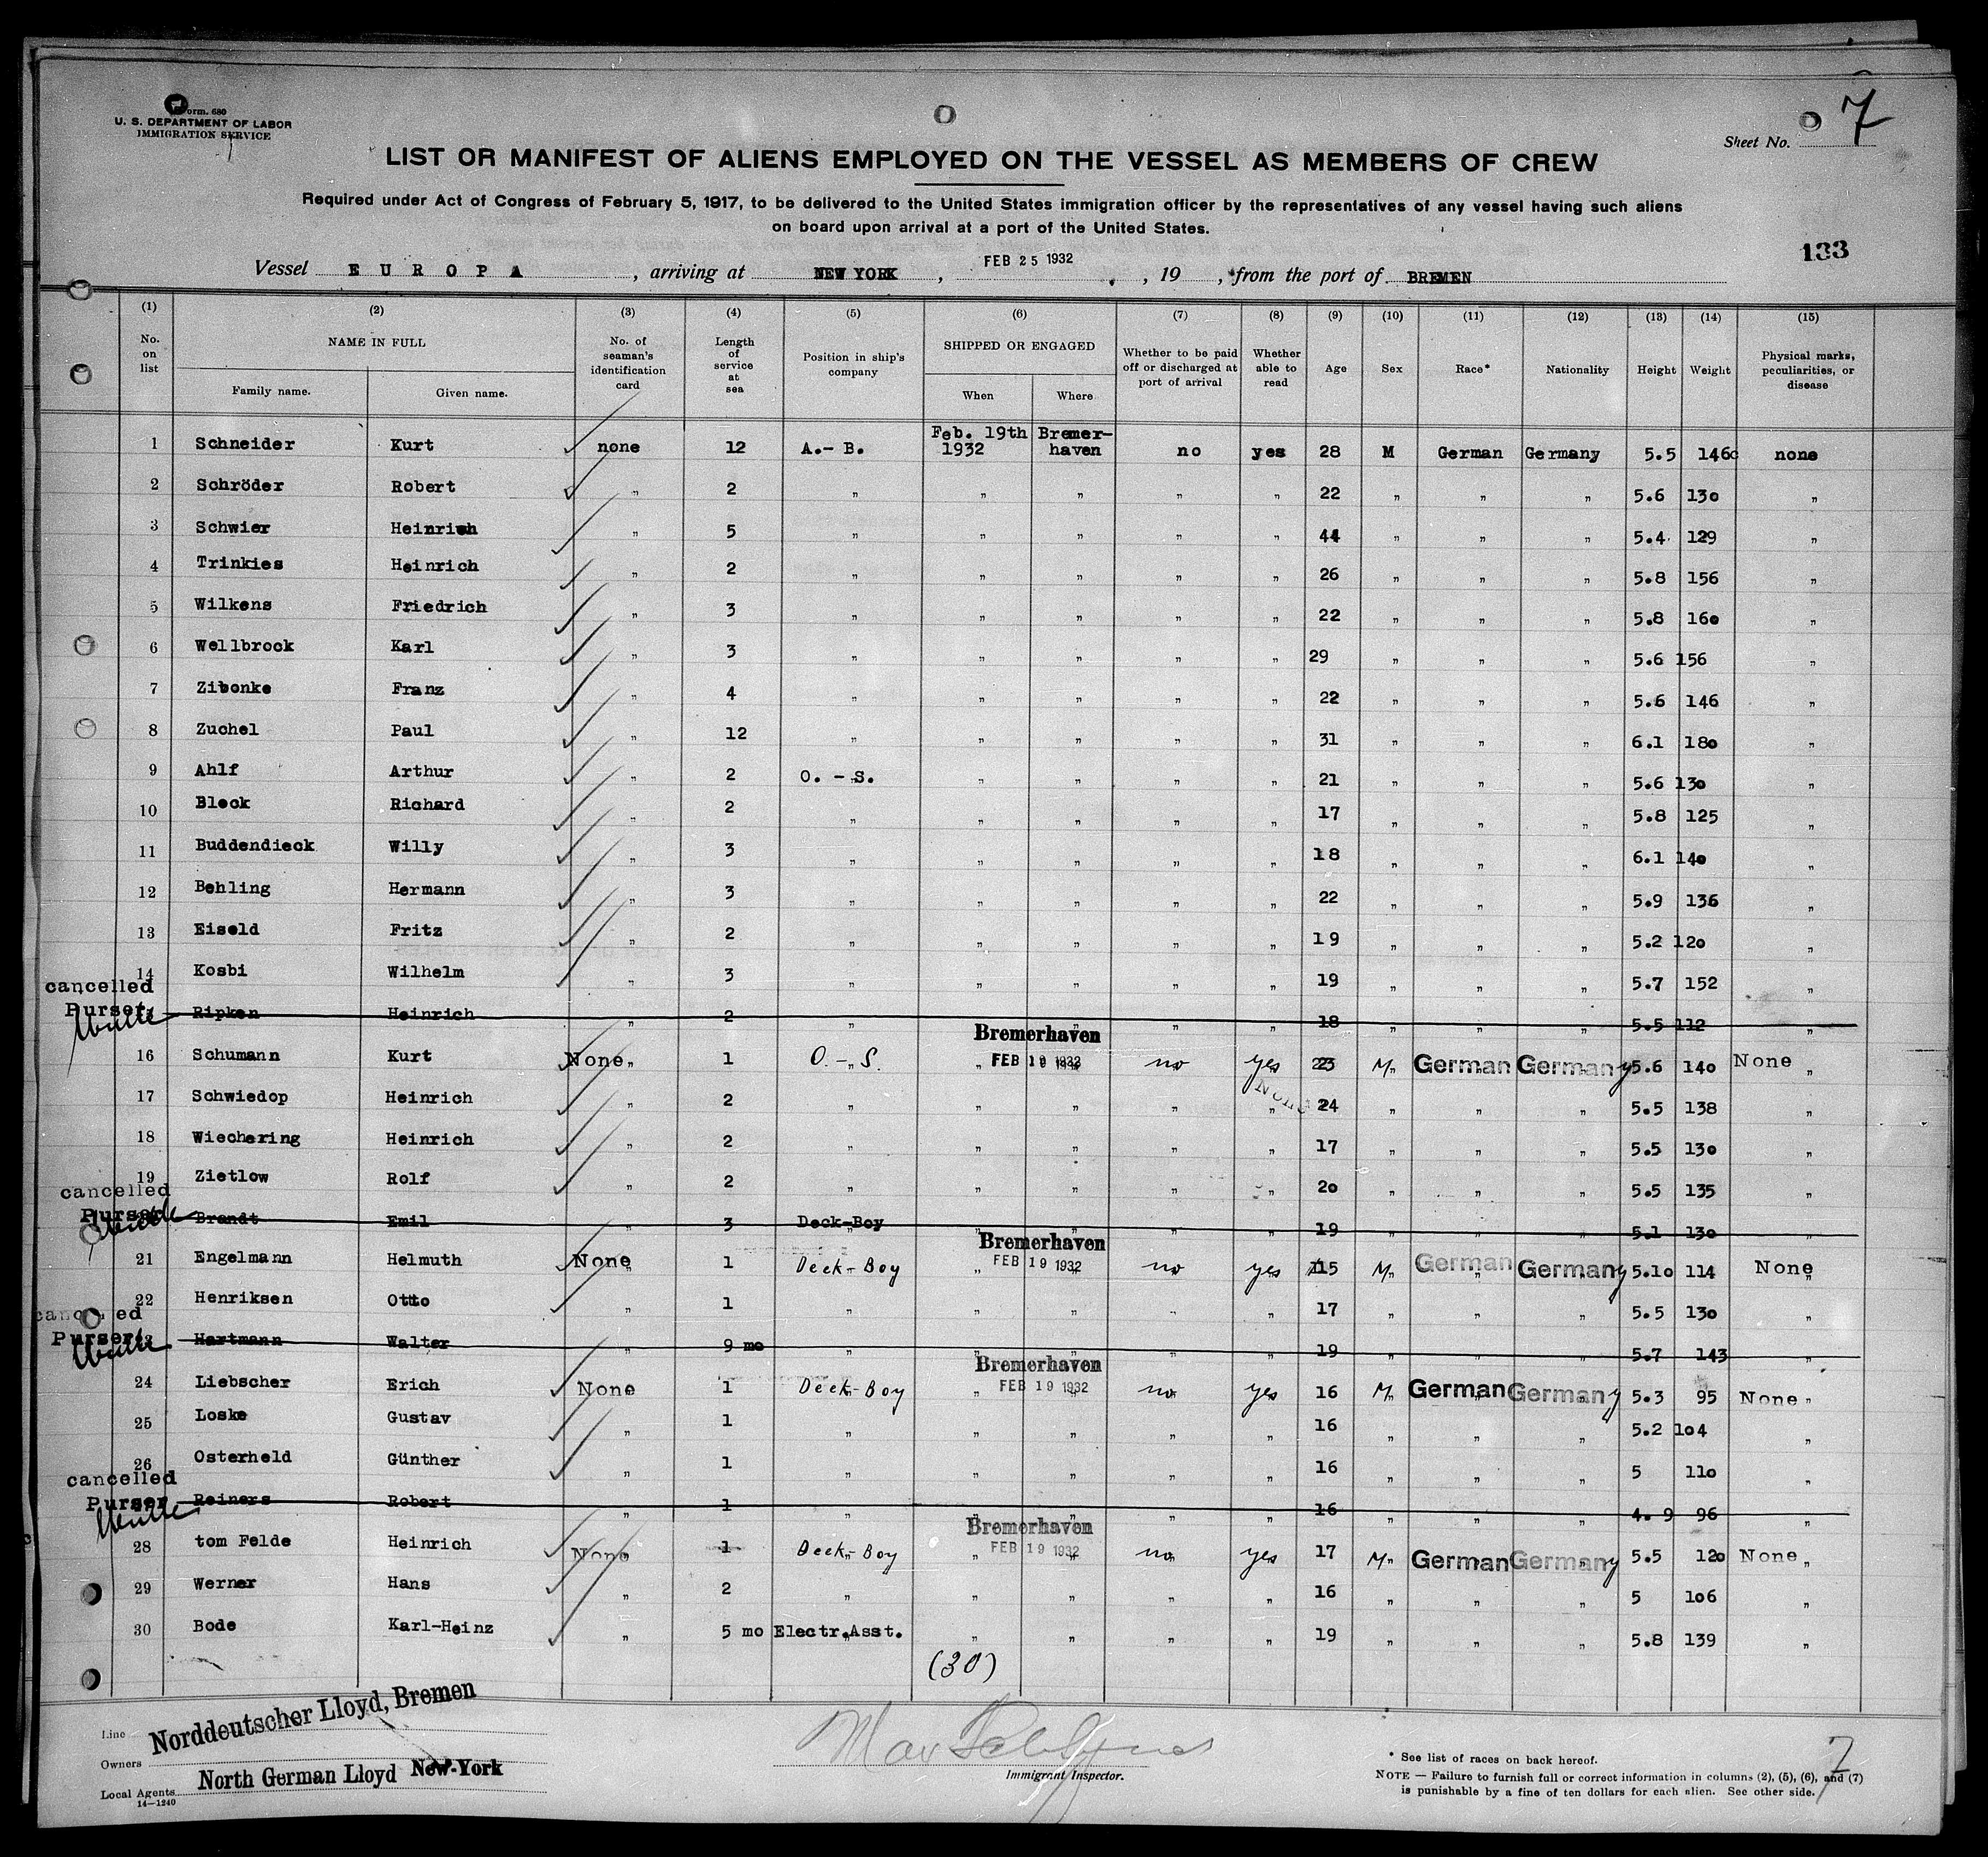 Form. 680
U. S. DEPARTMENT OF LABOR
IMMIGRATION SERVICE
Sheet No. 7
LIST OR MANIFEST OF ALIENS EMPLOYED ON THE VESSEL AS MEMBERS OF CREW
Required under Act of Congress of February 5, 1917, to be delivered to the United States immigration officer by the representatives of any vessel having such aliens
on board upon arrival at a port of the United States.
133
Vessel E U R O P A , arriving at NEW YORK , FEB 25 1932 , 19 , from the port of BREMEN
(1) (2) (3) (4) (5) (6) (7) (8) (9) (10) (11) (12) (13) (14) (15)
No. on list NAME IN FULL Family name. Given name. No. of seaman's identification card Length of service at sea Position in ship's company SHIPPED OR ENGAGED When Where Whether to be paid off or discharged at port of arrival Whether able to read Age Sex Race* Nationality Height Weight Physical marks, peculiarities, or disease
1 Schneider Kurt none 12 A.- B. Feb. 19th 1932 Bremer-haven no yes 28 M German Germany 5.5 146 none
2 Schröder Robert " 2 " " " " " 22 " " " 5.6 130 "
3 Schwier Heinrich " 5 " " " " " 44 " " " 5.4 129 "
4 Trinkies Heinrich " 2 " " " " " 26 " " " 5.8 156 "
5 Wilkens Friedrich " 3 " " " " " 22 " " " 5.8 160 "
6 Wellbrock Karl " 3 " " " " " 29 " " " 5.6 156 "
7 Zibonke Franz " 4 " " " " " 22 " " " 5.6 146 "
8 Zuchel Paul " 12 " " " " " 31 " " " 6.1 180 "
9 Ahlf Arthur " 2 O. - S. " " " " 21 " " " 5.6 130 "
10 Bleck Richard " 2 " " " " " 17 " " " 5.8 125 "
11 Buddendieck Willy " 3 " " " " " 18 " " " 6.1 140 "
12 Behling Hermann " 3 " " " " " 22 " " " 5.9 136 "
13 Eisold Fritz " 2 " " " " " 19 " " " 5.2 120 "
14 Kosbi Wilhelm " 3 " " " " " 19 " " " 5.7 152 "
cancelled
Purser Ripken Heinrich " 2 " " " " " 18 " " " 5.5 112 "
Bremerhaven
16 Schumann Kurt None 1 O.-S. FEB 19 1932 no yes 23 M German Germany 5.6 140 None
None
17 Schwiedop Heinrich " 2 " " " " " 24 " " " 5.5 138 "
18 Wiechering Heinrich " 2 " " " " " 17 " " " 5.5 130 "
19 Zietlow Rolf " 2 " " " " " 20 " " " 5.5 135 "
cancelled
Purser Brandt Emil " 3 Deck-Boy " " " " 19 " " " 5.1 130 "
Bremerhaven
21 Engelmann Helmuth None 1 Deck-Boy FEB 19 1932 no yes 15 M German Germany 5.10 114 None
22 Henriksen Otto " 1 " " " " " 17 " " " 5.5 130 "
cancelled
Purser 23 Hartmann Walter 9 mo " " " " " 19 " " " 5.7 143 "
Bremerhaven
24 Liebscher Erich None 1 Deck-Boy FEB 19 1932 no yes 16 M German Germany 5.3 95 None
25 Loske Gustav " 1 " " " " " 16 " " " 5.2 104 "
26 Osterheld Günther " 1 " " " " " 16 " " " 5 110 "
cancelled
Purser Reiners Robert " 1 " " " " " 16 " " " 4. 9 96 "
Bremerhaven
28 tom Felde Heinrich None 1 Deck-Boy FEB 19 1932 no yes 17 M German Germany 5.5 120 None
29 Werner Hans " 2 " " " " " 16 " " " 5 106 "
30 Bode Karl-Heinz " 5 mo Electr.Asst. " " " " 19 " " " 5.8 139 "
(30)
Line Norddeutscher Lloyd, Bremen
Owners
Local Agents North German Lloyd New-York
14—1240
Immigrant Inspector.
* See list of races on back hereof.
NOTE — Failure to furnish full or correct information in columns (2), (5), (6), and (7)
is punishable by a fine of ten dollars for each alien. See other side.
7